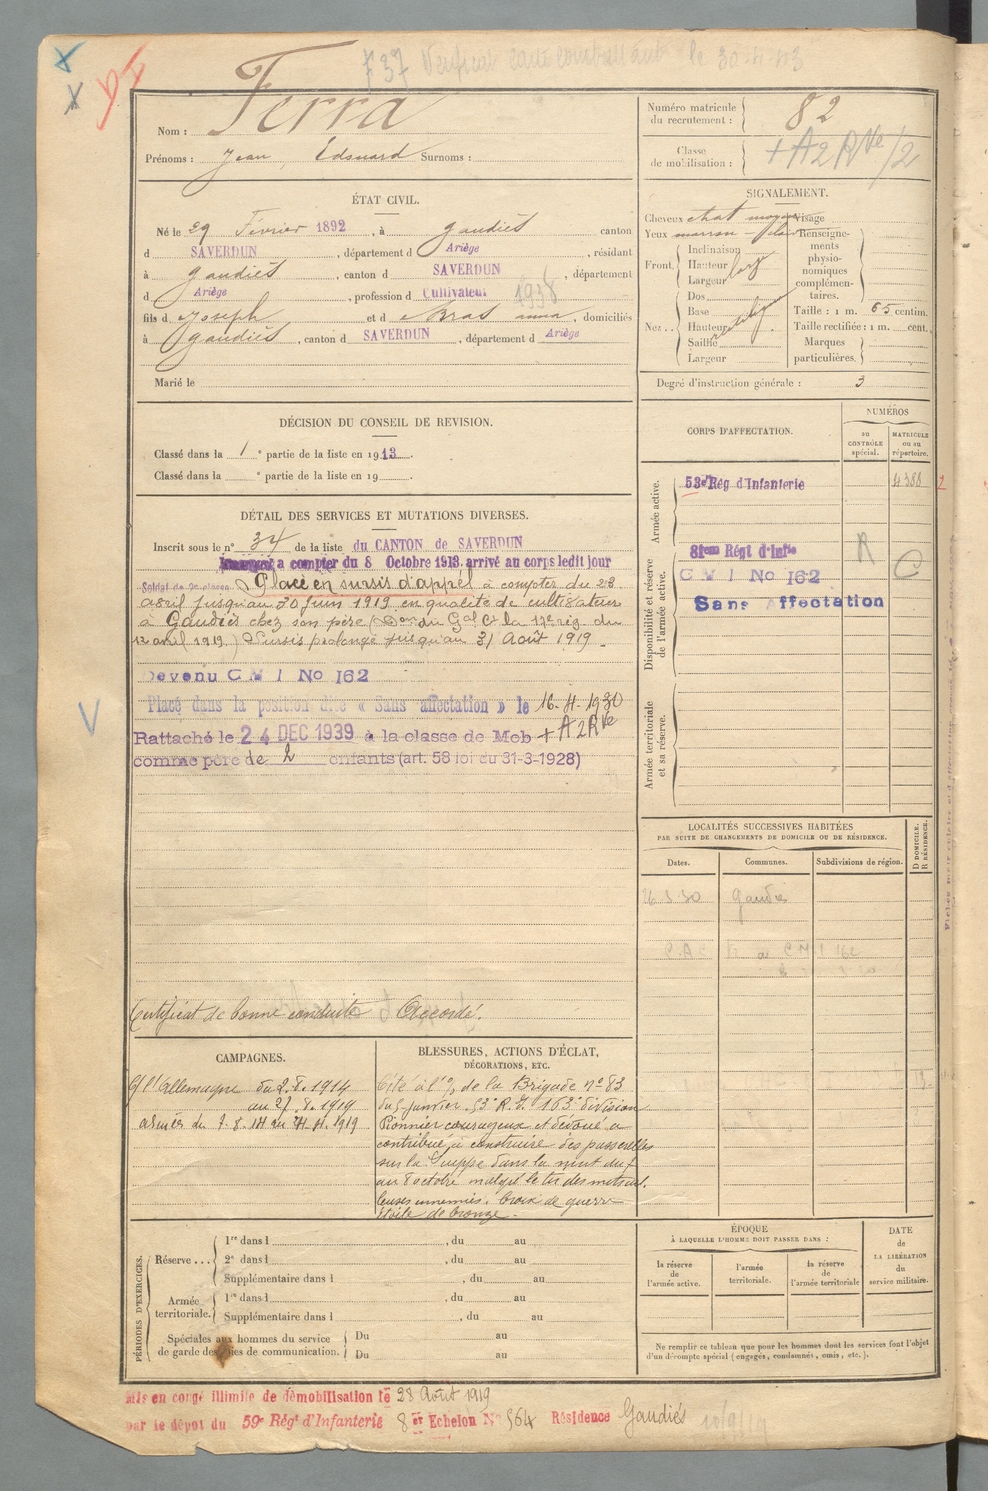 737 Verificat carte combattant le 30.4.43
Nom : Ferra
Prénoms : Jean Edouard Surnoms :
Numéro matricule
du recrutement : 82
Classe
de mobilisation : + A2 RVe/2
ÉTAT CIVIL.
Né le 29 Février 1892, à Gaudiès canton
d SAVERDUN, département d Ariège, résidant
à Gaudiès, canton d SAVERDUN, département
d Ariège, profession d Cultivateur 1938
fils d Joseph et d Bras anna, domiciliés
à Gaudiès, canton d SAVERDUN, département d Ariège
Marié le
SIGNALEMENT.
Cheveux chat moyen Visage
Yeux marron
Front. Inclinaison
Hauteur
Largeur
Nez .. Dos
Base
Hauteur
Saillie
Largeur
Renseigne-
ments
physio-
nomiques
complémen-
taires.
Taille : 1 m. 65 centim.
Taille rectifiée : 1 m. cent.
Marques
particulières.
Degré d'instruction générale : 3
DÉCISION DU CONSEIL DE REVISION.
Classé dans la 1e partie de la liste en 1913.
Classé dans la e partie de la liste en 19
CORPS D'AFFECTATION.
NUMÉROS
au
CONTRÔLE
spécial.
MATRICULE
ou au
répertoire.
Armée active.
53e Rég d'Infanterie 4388
Disponibilité et réserve
de l'armée active.
81em Régt d'Infie
C M I No 162
Sans Affectation
R C
Armée territoriale
et sa réserve.
DÉTAIL DES SERVICES ET MUTATIONS DIVERSES.
Inscrit sous le n° 34 de la liste du CANTON de SAVERDUN
a compter du 8 Octobre 1913. arrivé au corps ledit jour
Soldat de 2e classe Placé en sursis d'appel à compter du 23
avril jusqu'au 30 juin 1919 en qualité de cultivateur
à Gaudiès chez son père (Don du Gal Ct la 17e rég. du
12 avril 1919.) Sursis prolongé jusqu'au 31 Août 1919.
Devenu C M I No 162
Placé dans la position dite « Sans affectation » le 16-4-1930
Rattaché le 24 DEC 1939 à la classe de Mob + A2RVe
comme père de 2 enfants (art. 58 loi du 31-3-1928)
Certificat de bonne conduite Accordé.
LOCALITÉS SUCCESSIVES HABITÉES
PAR SUITE DE CHANGEMENTS DE DOMICILE OU DE RÉSIDENCE.
Dates. Communes. Subdivisions de région. D DOMICILE. R RÉSIDENCE.
Gaudiès
CAMPAGNES.
Ct l'Allemagne du 2.8.1914
au 27.8.1919
BLESSURES, ACTIONS D'ÉCLAT,
DÉCORATIONS, ETC.
Cité à l'O/ de la Brigade n° 83
du 5 janvier. 53e R.I. 163e division
Pionnier courageux et dévoué a
contribué à construire des passerelles
sur la Suippe dans la nuit du 7
au 8 octobre malgré le tir des mitrail.
leuses ennemies. Croix de guerre
étoile de bronze.
PÉRIODES D'EXERCICES.
Réserve ... 1re dans l , du au
2e dans l , du au
Supplémentaire dans l , du au
Armée
territoriale. 1re dans l , du au
Supplémentaire dans l , du au
Spéciales aux hommes du service
de garde des voies de communication. Du au
Du au
ÉPOQUE
À LAQUELLE L'HOMME DOIT PASSER DANS :
la réserve
de
l'armée active.
l'armée
territoriale.
la réserve
de
l'armée territoriale
DATE
de
LA LIBÉRATION
du
service militaire.
Ne remplir ce tableau que pour les hommes dont les services font l'objet
d'un décompte spécial (engagés, condamnés, omis, etc.).
Mis en congé illimité de démobilisation le 28 Août 1919
par le dépôt du 59e Régt d'Infanterie 8er Echelon N° 564 Résidence Gaudiès